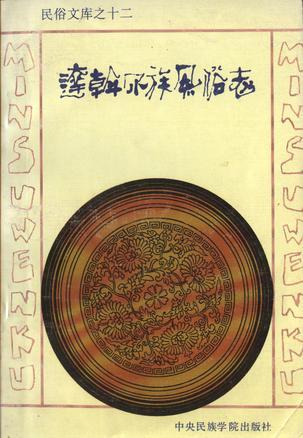 民俗文库之十二
达斡尔族风俗志
MINSUWENKU
MINSUWENKU
中央民族学院出版社